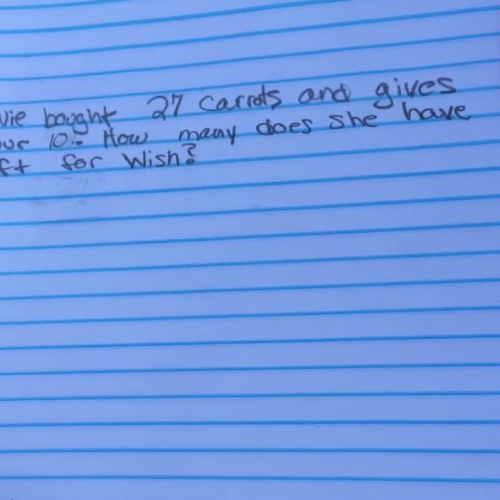 bought 27 carrots and gives
10. How many does she have
for Wish?